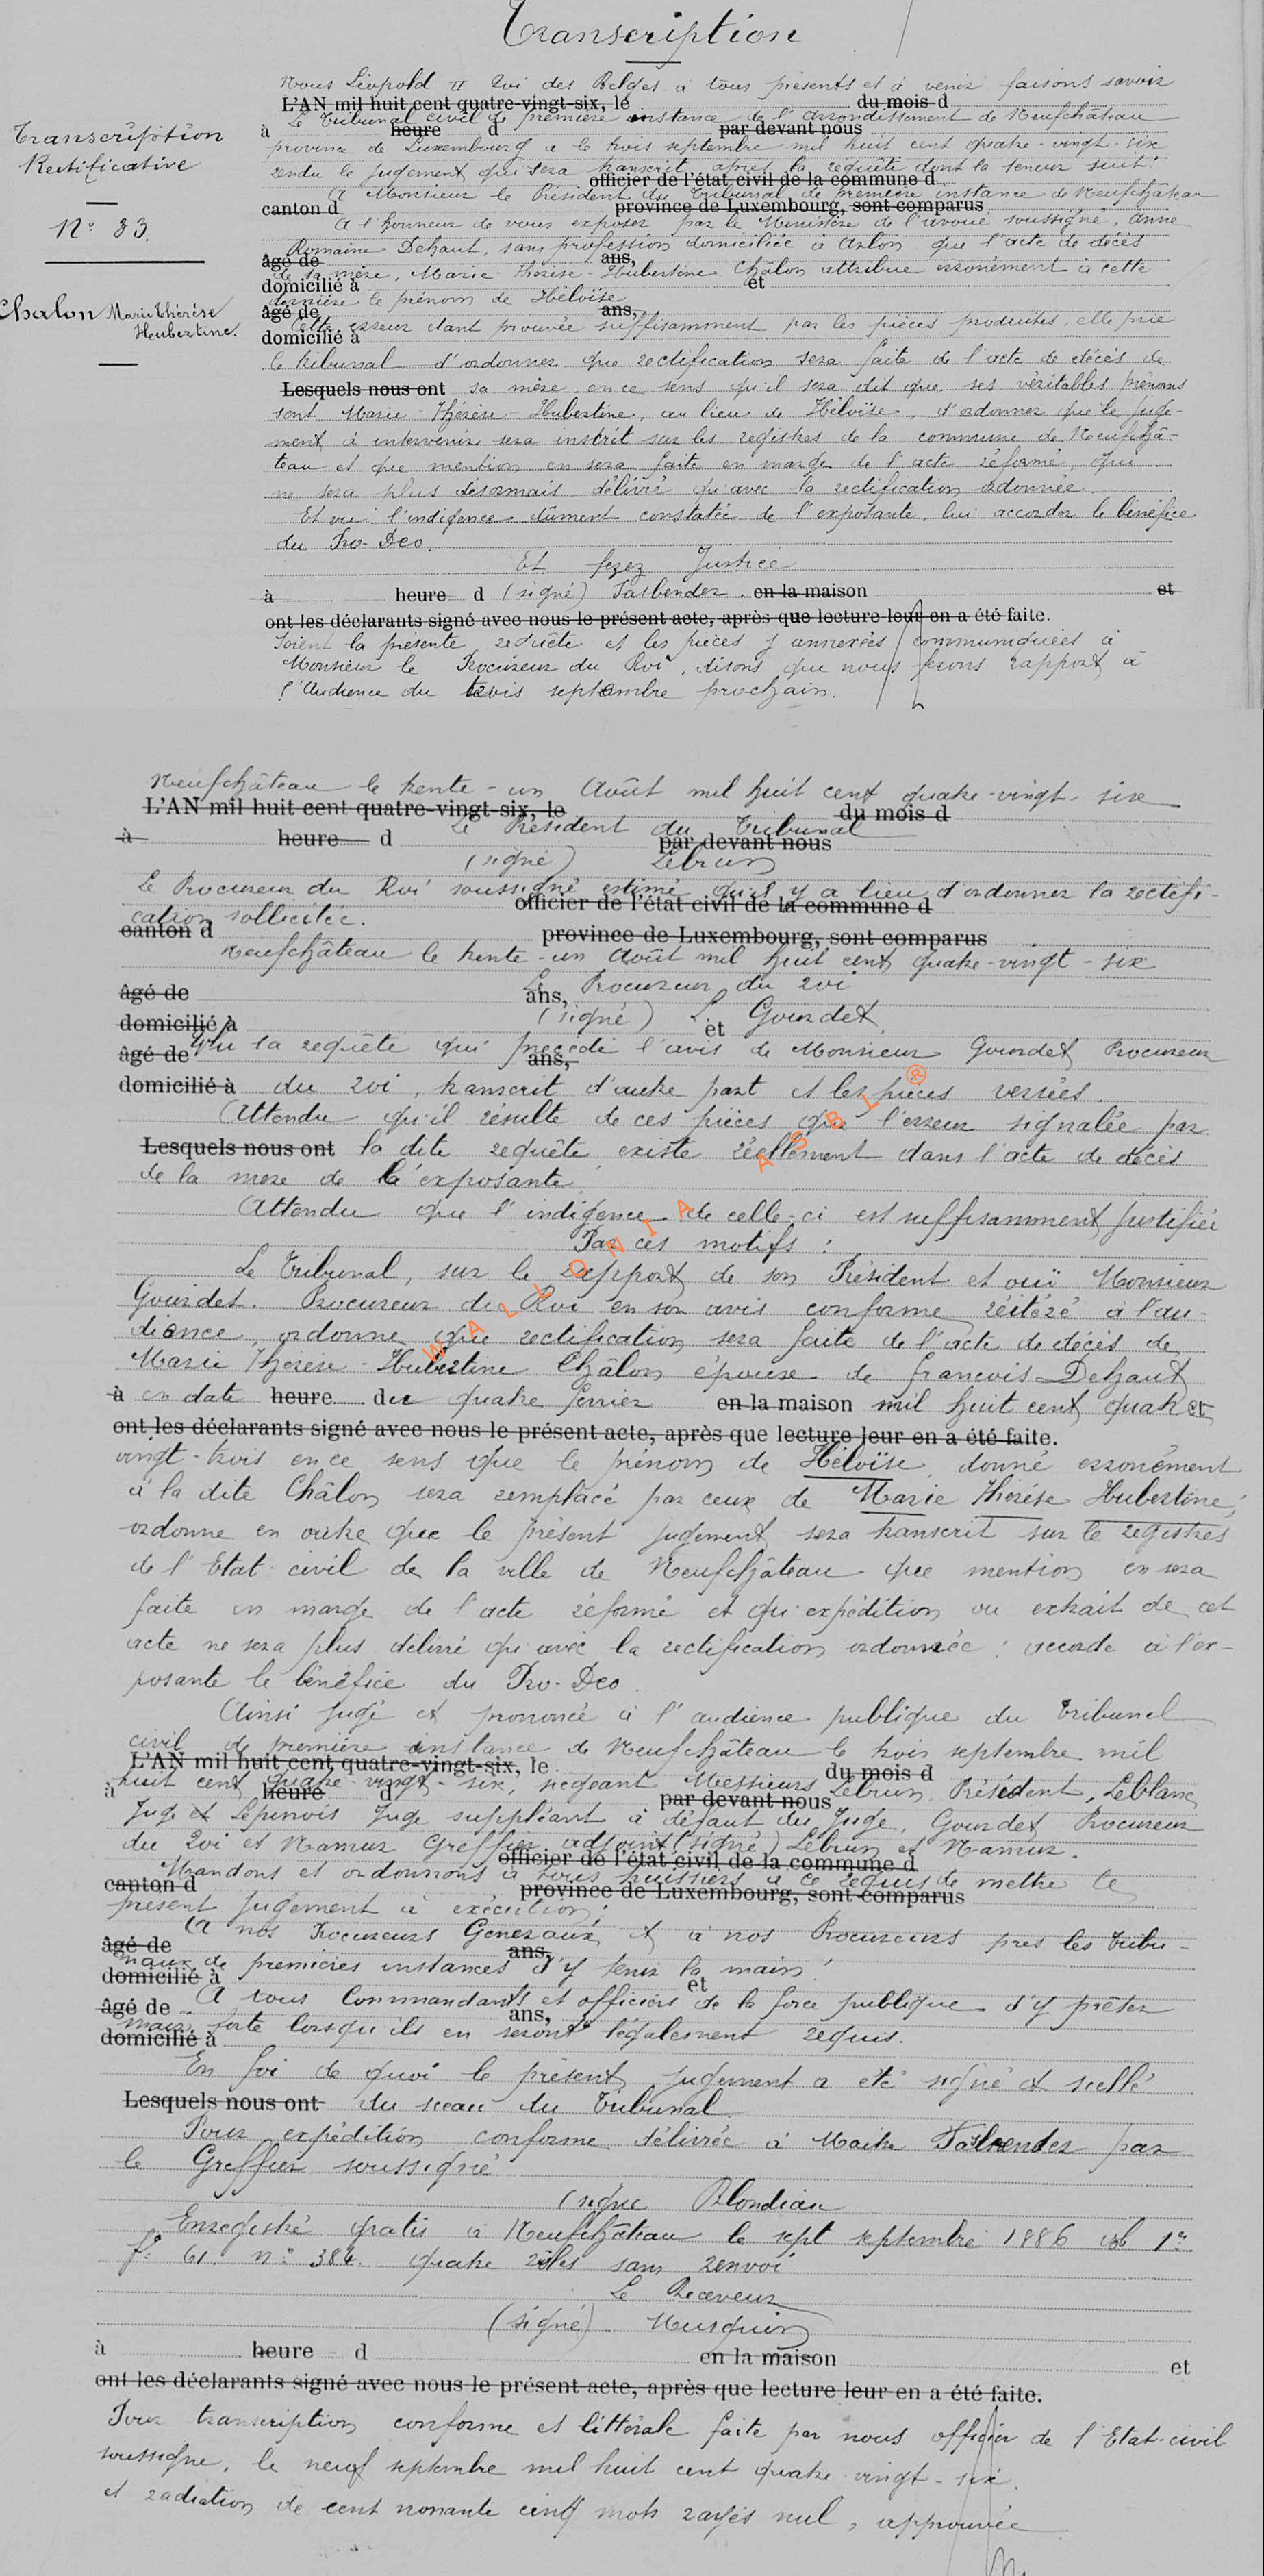 Transcription
Transcription
Rectificative
N° 33.
Chalon Marie Thérèse
Heubertine.
Nous Léopold II Roi des Belges à tous présents et à venir faisons savoir
L'AN mil huit cent quatre-vingt-six, le du mois d
Le Tribunal civil de première instance de l'arrondissement de Neufchâteau
à heure d par devant nous
province de Luxembourg a le trois septembre mil huit cent quatre-vingt-six
rendu le jugement qui sera transcrit après la requête dont la teneur suit :
officier de l'état civil de la commune d
A Monsieur le Président du Tribunal de première instance de Neufchâteau
canton d province de Luxembourg, sont comparus
A l'honneur de vous exposer par le Ministère de l'avoué soussigné, Anne
Romaine Dehaut, sans profession domiciliée à Arlon que l'acte de décès
âgé de ans,
de sa mère, Marie-Thérèse-Hubertine Châlon attribue erronément à cette
domicilié à et
dernière le prénom de Héloïse
âgé de ans,
Cette erreur étant prouvée suffisamment par les pièces produites, elle prie
domicilié à
le tribunal d'ordonner que rectification sera faite de l'acte de décès de
Lesquels nous ont sa mère en ce sens qu'il sera dit que ses véritables prénoms
sont Marie-Thérèse-Hubertine, au lieu de Héloïse, d'ordonner que le juge-
ment à intervenir sera inscrit sur les registres de la commune de Neufchâ-
teau et que mention en sera faite en marge de l'acte réformé, qui
ne sera plus désormais délivré qu'avec la rectification ordonnée.
Et vu l'indigence dûment constatée de l'exposante lui accorder le bénéfice
du Pro-Deo.
Et ferez Justice
à heure d (signé) Fasbender. en la maison et
ont les déclarants signé avec nous le présent acte, après que lecture leur en a été faite.
Soient la présente requête et les pièces y annexées communiquées à
Monsieur le Procureur du Roi, disons que nous ferons rapport à
l'Audience du trois septembre prochain.
Neufchâteau le trente-un Août mil huit cent quatre-vingt-six
L'AN mil huit cent quatre-vingt-six, le du mois d
Le Président du Tribunal
à heure d par devant nous
(signé) Lebrun
Le Procureur du Roi soussigné estime qu'il y a lieu d'ordonner la rectifi-
officier de l'état civil de la commune d
cation sollicitée.
canton d province de Luxembourg, sont comparus
Neufchâteau le trente-un Août mil huit cent quatre-vingt-six
Le Procureur du roi
âgé de ans,
(signé) L. Gourdet
domicilié à et
Vu la requête qui précède l'avis de Monsieur Gourdet Procureur
âgé de ans,
domicilié à du roi, transcrit d'autre part et les pièces versées.
Attendu qu'il résulte de ces pièces que l'erreur signalée par
Lesquels nous ont la dite requête existe réellement dans l'acte de décès
de la mère de l'exposante
Attendu que l'indigence de celle-ci est suffisamment justifiée
Par ces motifs :
Le Tribunal, sur le rapport de son Président et ouï Monsieur
Gourdet. Procureur du Roi en son avis conforme réitéré à l'au-
dience, ordonne que rectification sera faite de l'acte de décès de
Marie Thérèse-Hubertine Châlon épouse de François Dehaut
à en date heure du quatre fevrier en la maison mil huit cent quatre et
ont les déclarants signé avec nous le présent acte, après que lecture leur en a été faite.
vingt-trois en ce sens que le prénom de Héloïse, donné erronément
à la dite Châlon sera remplacé par ceux de Marie Thérèse Hubertine;
ordonne en outre que le présent jugement sera transcrit sur le registres
de l'Etat civil de la ville de Neufchâteau que mention en sera
faite en marge de l'acte réformé et qu'expédition ou extrait de cet
acte ne sera plus délivré qu'avec la rectification ordonnée : accorde à l'ex-
posante le bénéfice du Pro-Deo.
Ainsi jugé et prononcé à l'audience publique du Tribunal
civil de première instance de Neufchâteau le trois septembre mil
L'AN mil huit cent quatre-vingt-six, le du mois d
huit cent quatre-vingt-six, siégeant Messieurs Lebrun Président, Leblanc
à heure d par devant nous
Juge et Lépinois Juge suppléant à défaut du Juge, Gourdet Procureur
du Roi et Namur Greffier adjoint (signé) Lebrun et Namur.
officier de l'état civil de la commune d
Mandons et ordonnons à tous huissiers à ce requis de mettre le
canton d province de Luxembourg, sont comparus
présent Jugement à exécution;
A nos Procureurs Généraux et à nos Procureurs près les Tribu-
âgé de ans,
naux de premières instances d'y tenir la main.
domicilié à et
A tous Commandants et officiers de la force publique d'y prêter
âgé de ans,
main forte lorsqu'ils en seront légalement requis.
domicilié à
En foi de quoi le présent jugement a été signé et scellé
Lesquels nous ont du sceau du Tribunal
Pour expédition conforme délivrée à Maître Fasbender par
le Greffier soussigné
(signé Blondiau
Enregistré gratis à Neufchâteau le sept septembre 1886 vol 1er
f° 61 n° 384. quatre rôles sans renvoi
Le Receveur
(signé) Musquin
à heure d en la maison et
ont les déclarants signé avec nous le présent acte, après que lecture leur en a été faite.
Pour transcription conforme et littérale faite par nous officier de l'Etat-civil
soussigné, le neuf septembre mil huit cent quatre-vingt-six.
et radiation de cent nonante cinq mots rayés nul, approuvée
WALLONIA ASBL ®